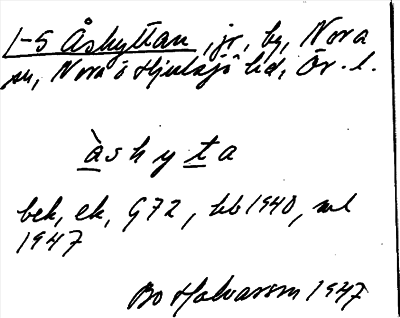 L-S Åshyttan, jr, by, Nora
sn, Nora o Hjulsjö bd, Ör. l.
àshyta
bek, ek, G72, hb 1940, ml
1947
Bo Halvarson 1947